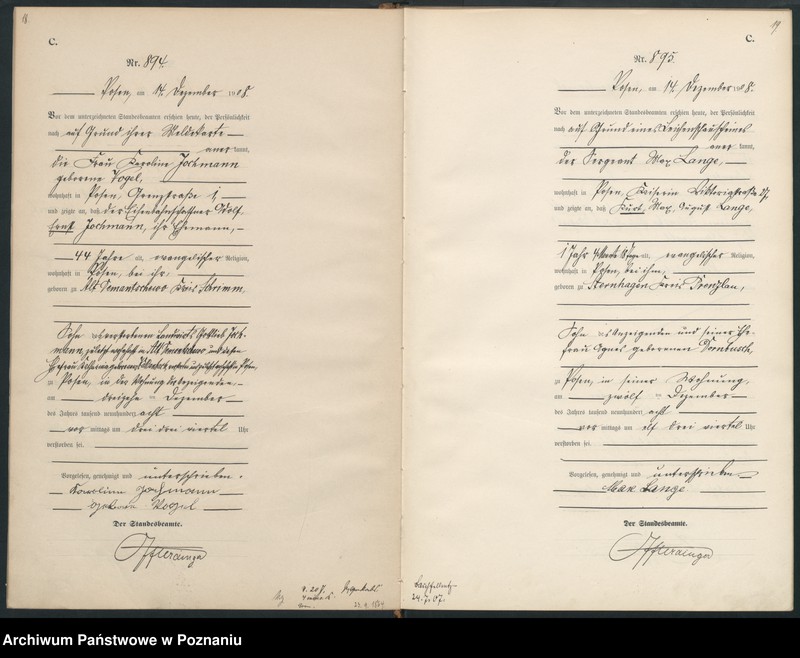 18
C.
Nr. 894.
Posen, am 14. Dezember 1908.
Vor dem unterzeichneten Standesbeamten erschien heute, der Persönlichkeit
nach auf Grund ihrer Meldekarte
anerkannt,
die Frau Karoline Jochmann
geborene Vogel,
wohnhaft in Posen, Grenzstraße 1,
und zeigte an, daß der Eisenbahnschaffner Adolf
Ernst Jochmann, ihr Ehemann,
44 Jahre alt, evangelischer Religion,
wohnhaft in Posen, bei ihr,
geboren zu Alt Kreis Schrimm,
Sohn des verstorbenen Landwirts Gottlieb Joch-
mann, zuletzt wohnhaft in Alt und dessen
Ehefrau
zu Posen, in der Wohnung der Anzeigenden
am dreizehn ten Dezember
des Jahres tausend neunhundert acht
vor mittags um drei drei viertel Uhr
verstorben sei.
Vorgelesen, genehmigt und unterschrieben.
Karoline Jochmann
geborene Vogel
Der Standesbeamte.
19
C.
Nr. 895.
Posen, am 14. Dezember 1908.
Vor dem unterzeichneten Standesbeamten erschien heute, der Persönlichkeit
nach auf Grund eines Leichenschauscheines
anerkannt,
der Sergeant Max Lange,
wohnhaft in Posen, Kaiserin Viktoriastraße
und zeigte an, daß Kurt, Max, August Lange,
1 Jahr 4 Monate alt, evangelischer Religion,
wohnhaft in Posen, bei ihm,
geboren zu Kernhagen Kreis Prenzlau,
Sohn des Anzeigenden und seiner Ehe-
frau Agnes geborenen Dornbusch,
zu Posen, in seiner Wohnung,
am zwölf ten Dezember
des Jahres tausend neunhundert acht
vor mittags um elf drei viertel Uhr
verstorben sei.
Vorgelesen, genehmigt und unterschrieben
Max Lange
Der Standesbeamte.
24.7.07.
Archiwum Państwowe w Poznaniu